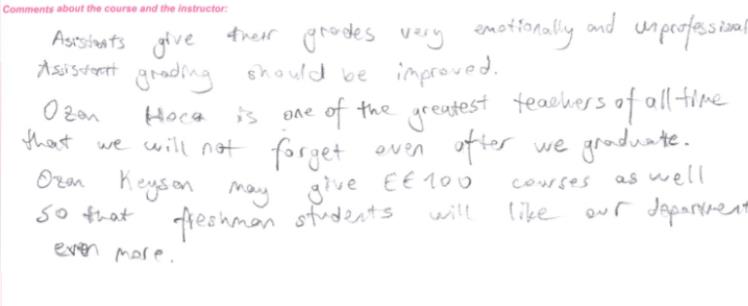 Comments about the course and the instructor:
Asistants give their grades very emotionally and unprofessional
Assistant grading should be improved.
Ozan Hoca is one of the greatest teachers of all time
that we will not forget even after we graduate.
Ozan Keysan may give EE100 courses as well
so that freshman students will like our department
even more.